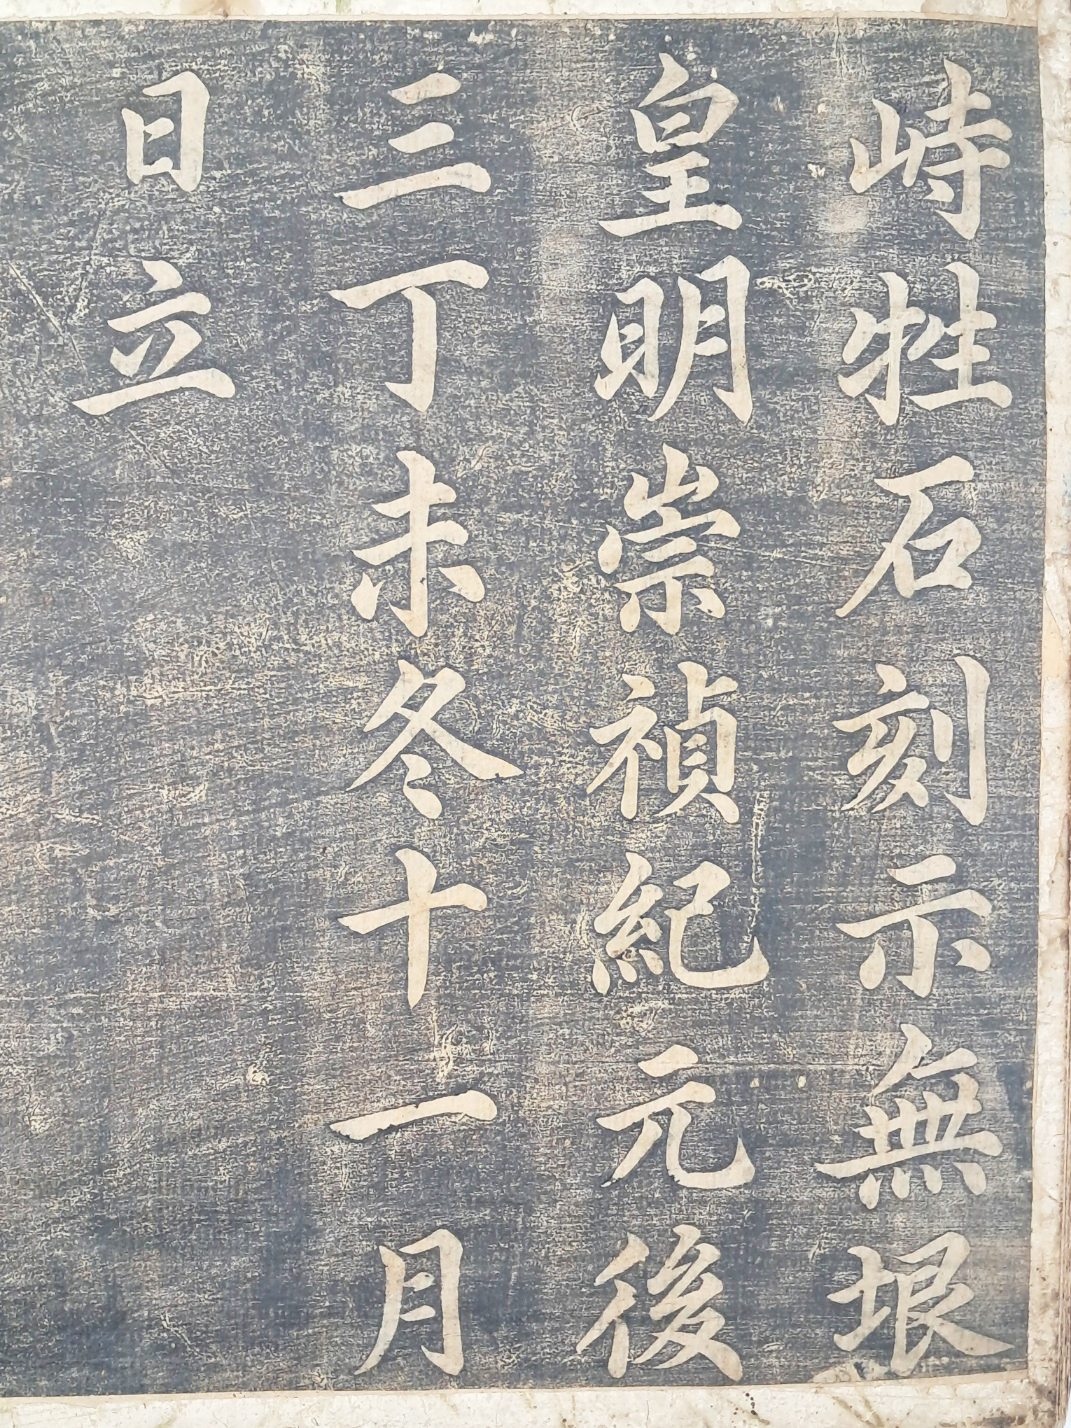 峙牲石刻示無垠
皇明崇禎紀元後
三丁未冬十一月
日立